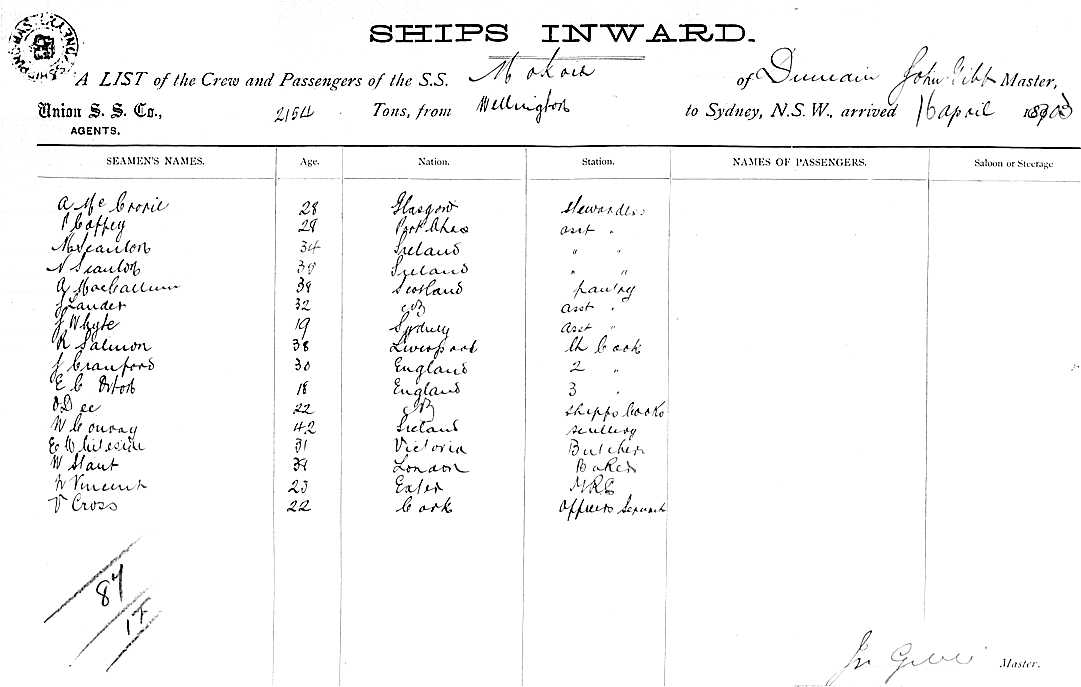 SHIPS INWARD.
A LIST of the Crew and Passengers of the S.S. Mokoia of John Gibb Master,
Union S. S. Co., 2154 Tons, from Wellington to Sydney, N.S.W., arrived 16 april 1903
AGENTS.
SEAMEN'S NAMES. Age. Nation. Station. NAMES OF PASSENGERS. Saloon or Steerage
A Mc Crorie 28 Glasgow Stewardess
P Coffey 29 asst "
M Scanlon 34 Ireland " "
N Scanlon 30 Ireland " "
A MacCallum 39 Scotland pantry
J Lander 32 asst "
J Whyte 19 Sydney asst "
R Salmon 38 Liverpool Ch Cook
J Cranford 30 England 2 "
E C 18 England 3 "
D Dee 22 Shipps Cooks
W Conway 42 Ireland scullery
E Whiteside 31 Victoria Butcher
W Staut 39 London Baker
W Vincent 23 Exeter
V Cross 22 Cork Officers Servant
87
17
Jn Gibb Master.